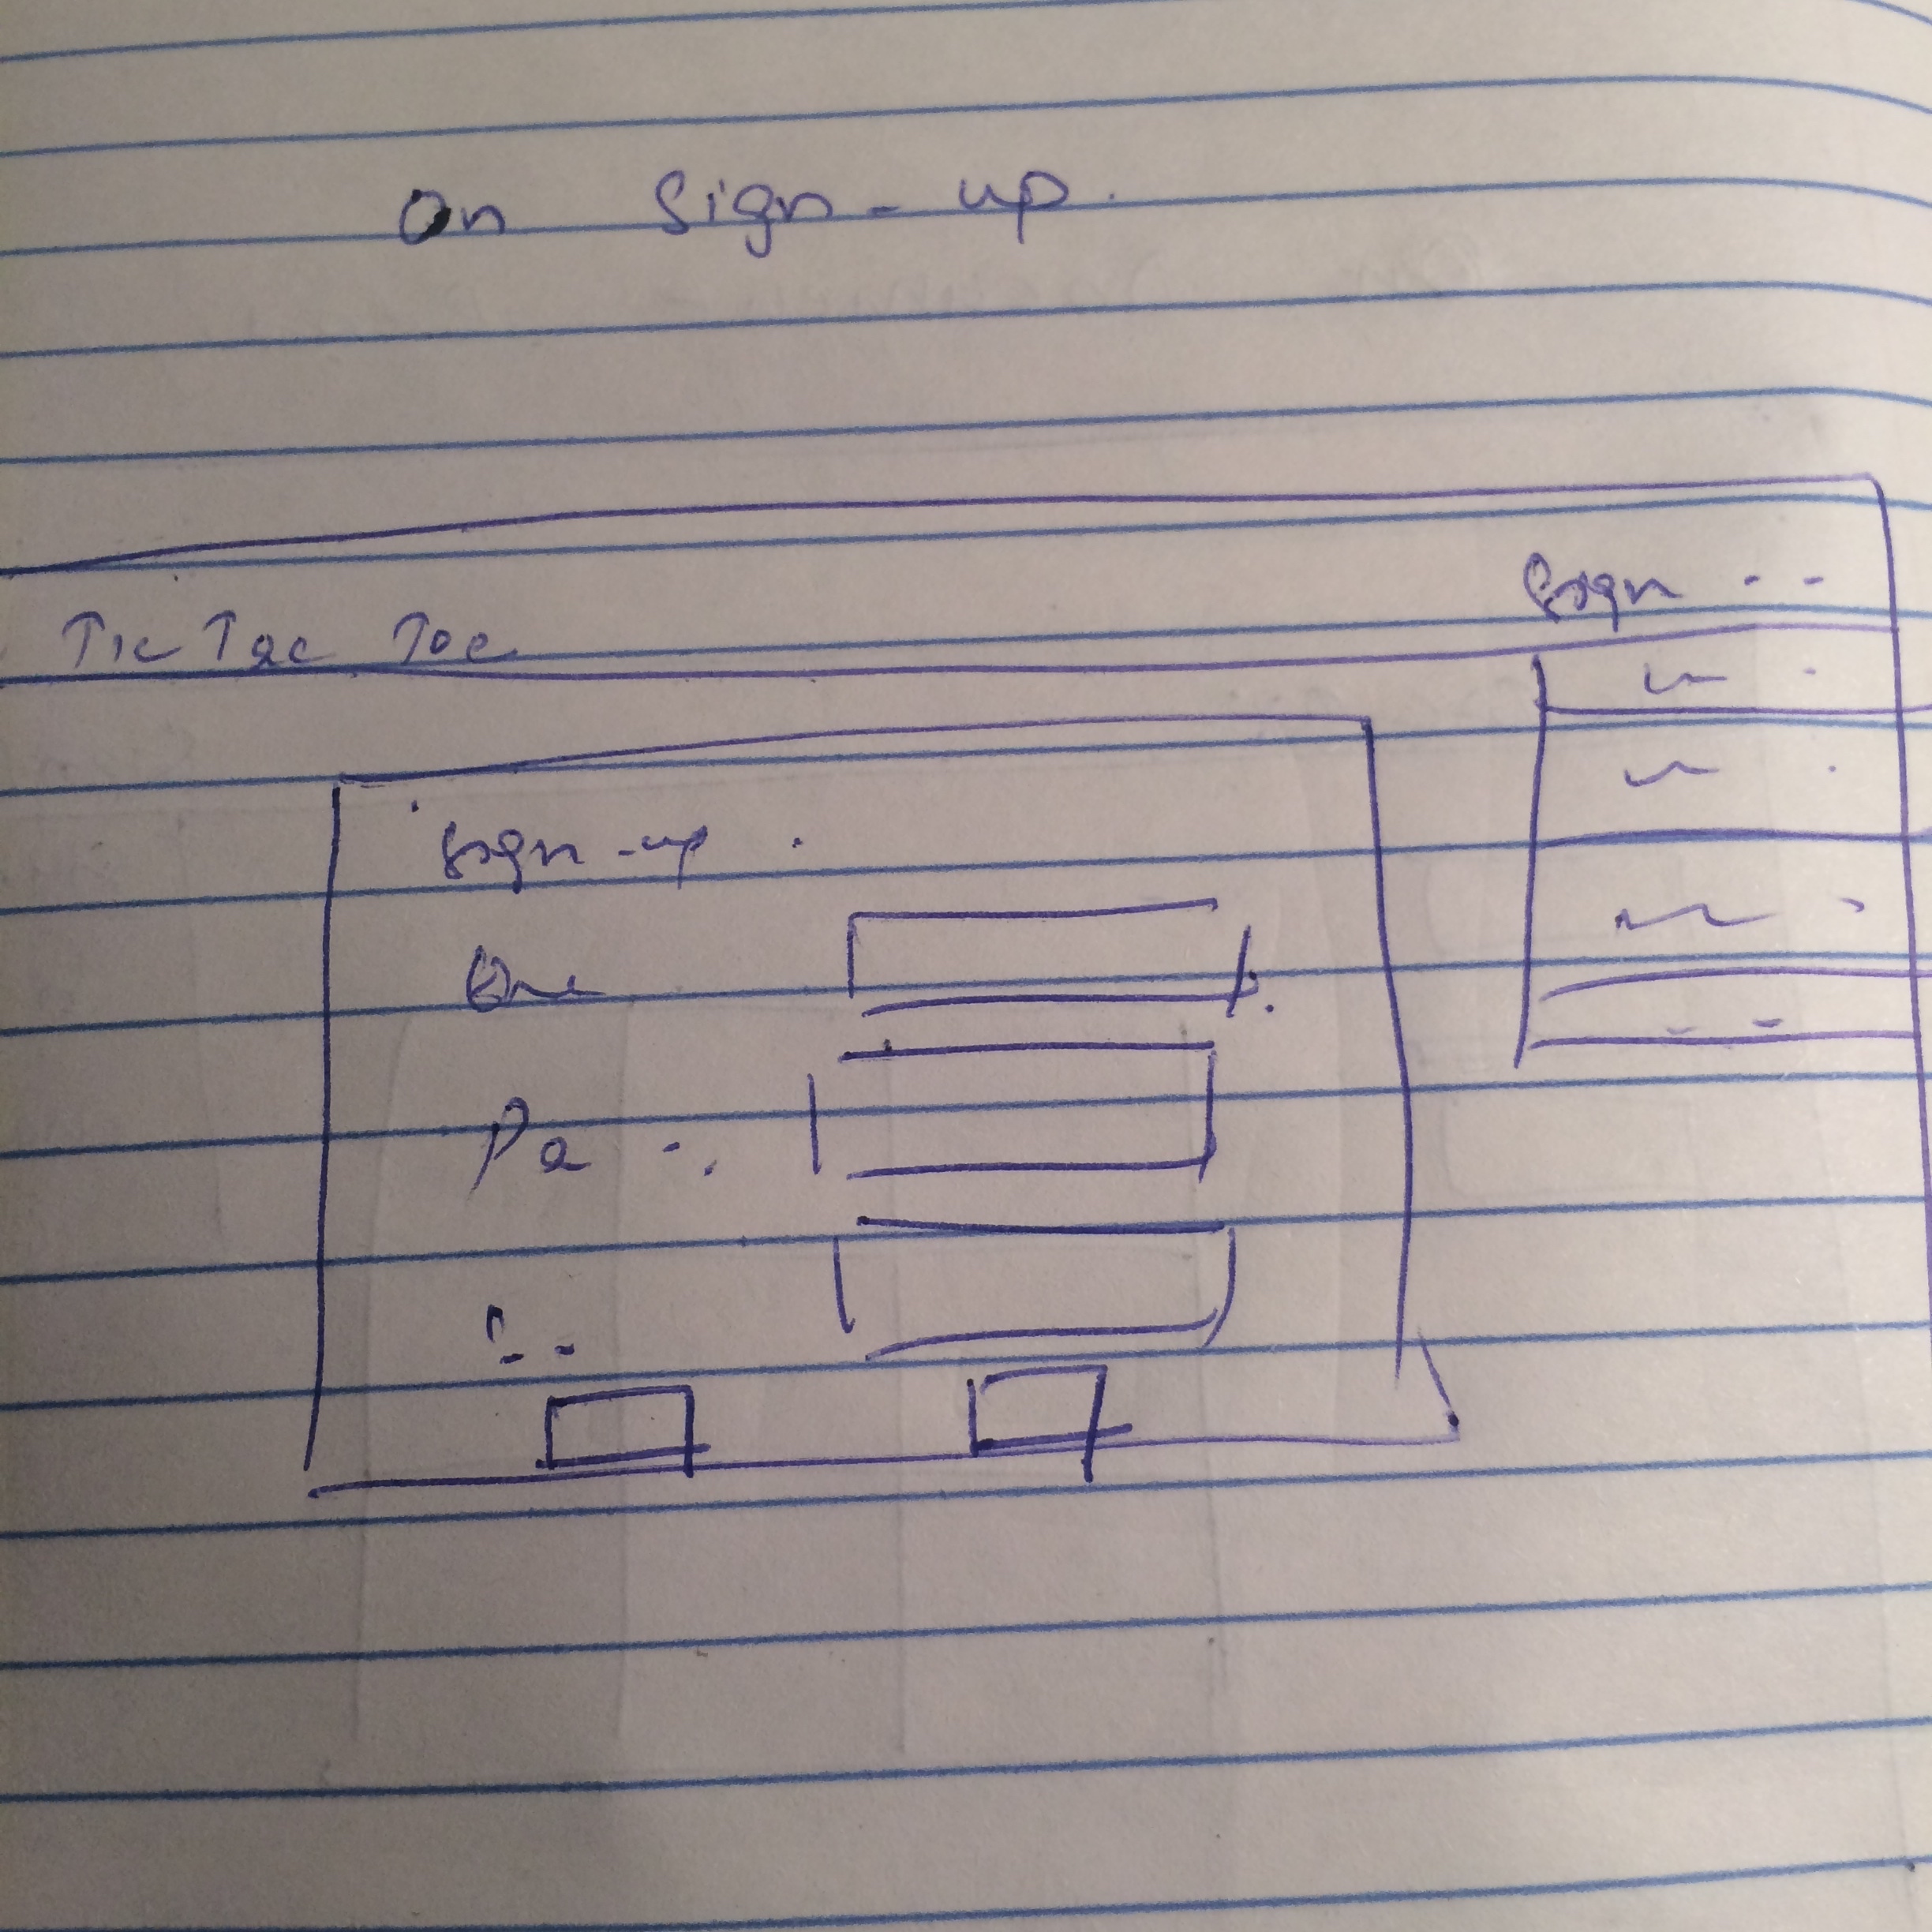 On Sign-up.
Tic Tac Toe
Sign --
Sign-up.
Pa